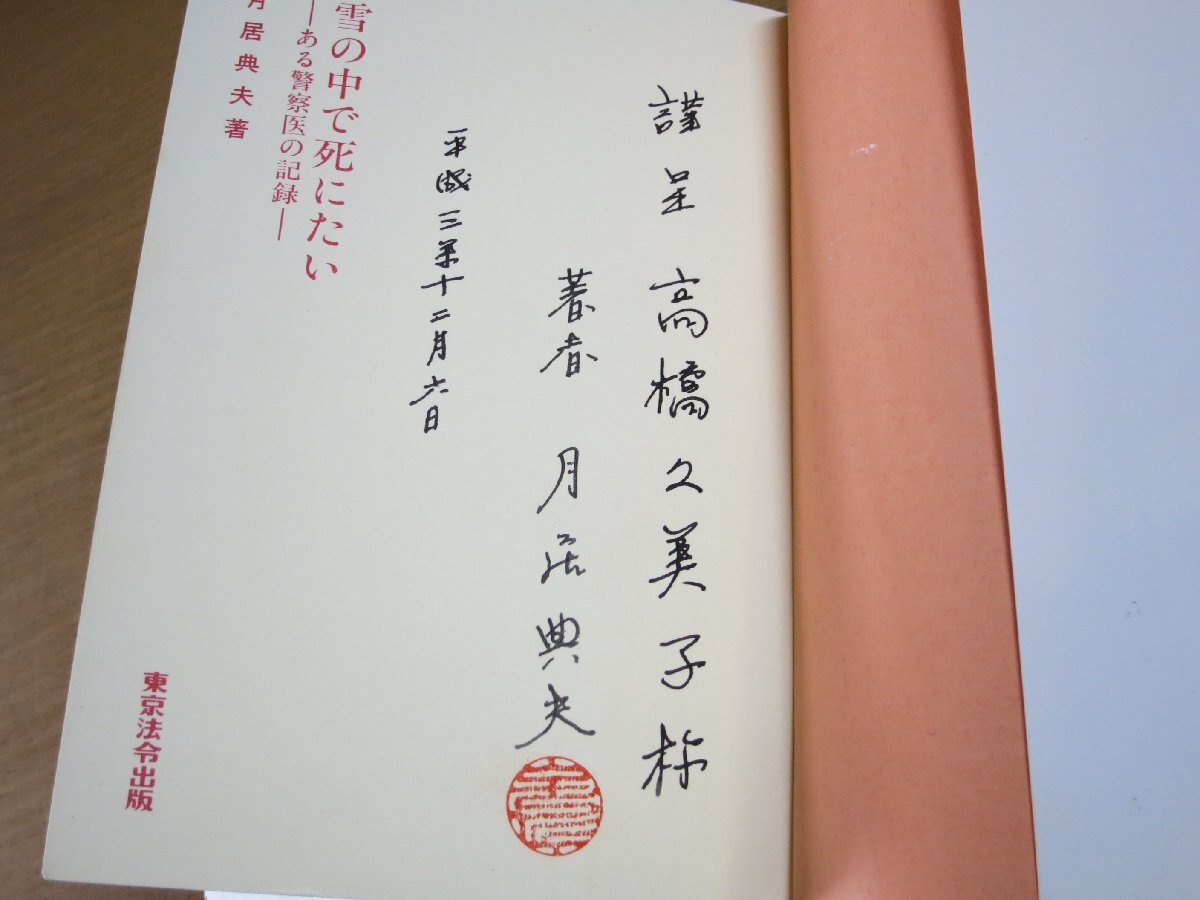 謹呈 高橋久美子様
著者 月居典夫
平成三年十二月六日
雪の中で死にたい
―ある警察医の記録―
月居典夫著
東京法令出版